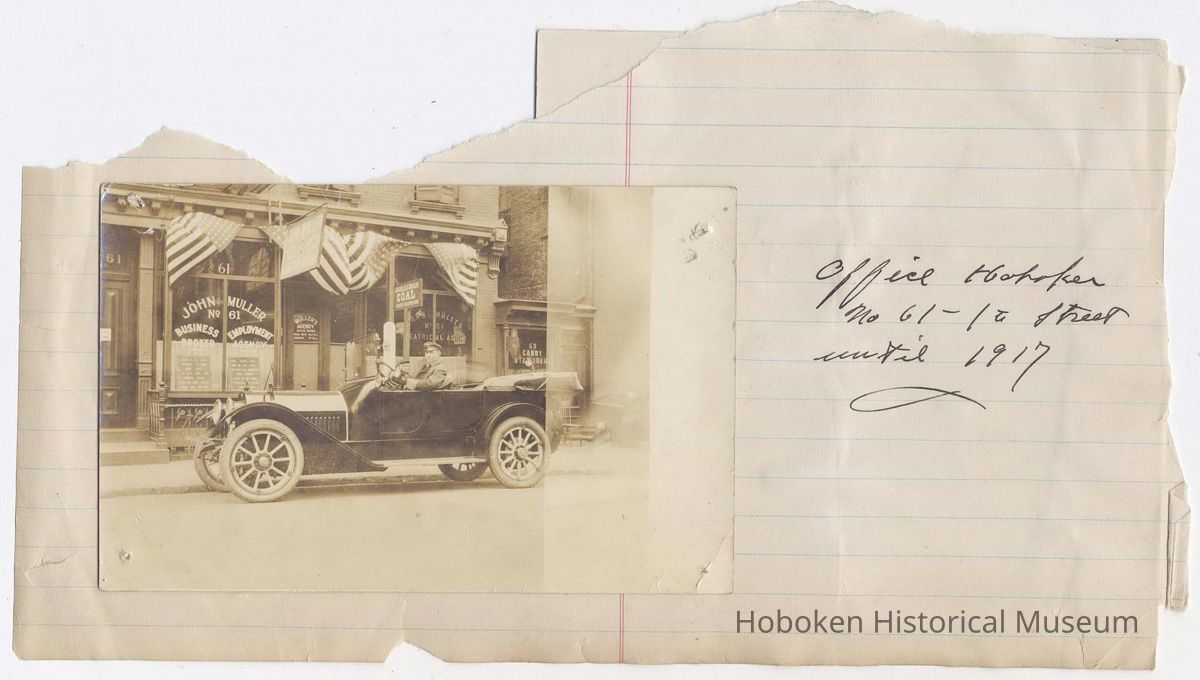 Office Hoboken
No 61 - 1st Street
until 1917
61
61
JOHN MULLER
No 61
BUSINESS EMPLOYMENT
BROKER AGENCY
MULLER'S
AGENCY
COAL
JOHN MULLER
No 61
THEATRICAL AGENCY
63
CANDY
STATIONERY
Hoboken Historical Museum